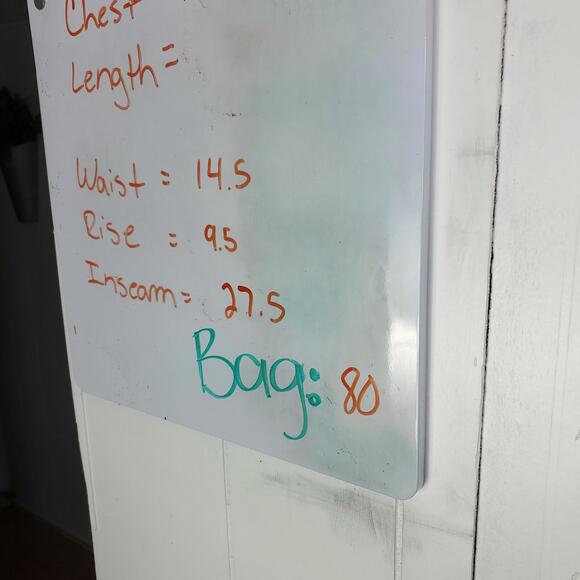 Chest
Length =
Waist = 14.5
Rise = 9.5
Inseam = 27.5
Bag: 80